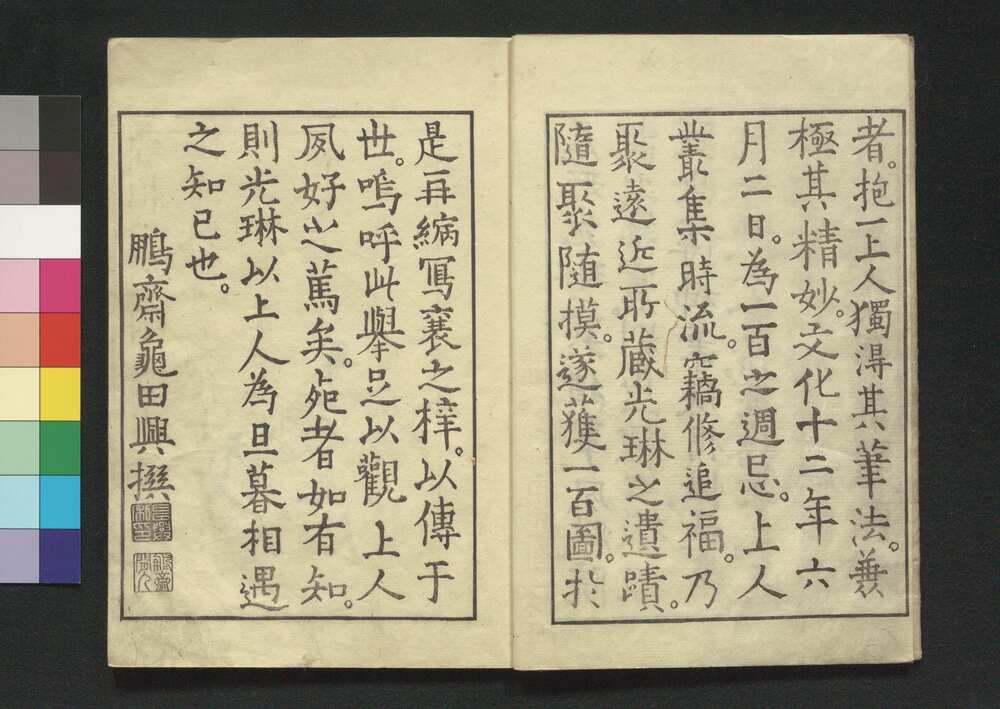 者。抱一上人獨淂其筆法。兼
極其精妙。文化十二年六
月二日。為一百之週忌。上人
叢集時流。竊修追福。乃
聚遠近所藏光琳之遺蹟。
隨聚随摸。遂獲一百圖。於
是再編寫㐮之梓。以傳于
世。嗚呼此舉足以觀上人
夙好之篤矣。死者如有知。
則光琳以上人為旦暮相遇
之知已也。
鵬齋龜田興撰